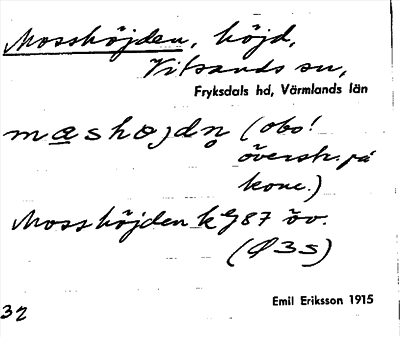 Mosshöjden, höjd,
Vitsands sn,
Fryksdals hd, Värmlands län
mæshöjdn̥ (obs!
överstr. på
konc.)
Mosshöjden kg 87 öv.
(Ø35)
Emil Eriksson 1915
32